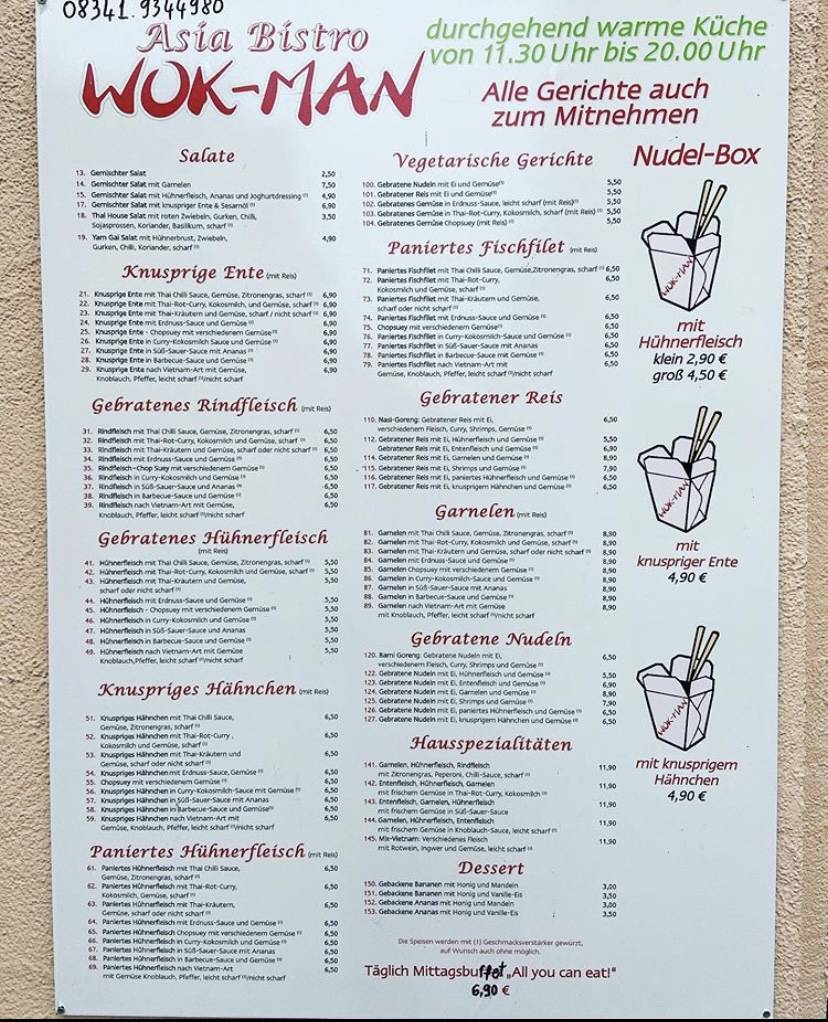 08341.9344980
Asia Bistro
WOK-MAN
durchgehend warme Küche
von 11.30 Uhr bis 20.00 Uhr
Alle Gerichte auch
zum Mitnehmen
Salate
13. Gemischter Salat 2,50
14. Gemischter Salat mit Garnelen 7,50
15. Gemischter Salat mit Hühnerfleisch, Ananas und Joghurtdressing (1) 4,90
17. Gemischter Salat mit knuspriger Ente & Sesamöl (1) 6,90
18. Thai House Salat mit roten Zwiebeln, Gurken, Chilli, 3,50
Sojasprossen, Koriander, Basilikum, scharf (1)
19. Yam Gai Salat mit Hühnerbrust, Zwiebeln, 4,90
Gurken, Chilli, Koriander, scharf (1)
Knusprige Ente (mit Reis)
21. Knusprige Ente mit Thai Chilli Sauce, Gemüse, Zitronengras, scharf (1) 6,90
22. Knusprige Ente mit Thai-Rot-Curry, Kokosmilch, und Gemüse, scharf (1) 6,90
23. Knusprige Ente mit Thai-Kräutern und Gemüse, scharf / nicht scharf (1) 6,90
24. Knusprige Ente mit Erdnuss-Sauce und Gemüse (1) 6,90
25. Knusprige Ente - Chopsuey mit verschiedenem Gemüse (1) 6,90
26. Knusprige Ente in Curry-Kokosmilch Sauce und Gemüse (1) 6,90
27. Knusprige Ente in Süß-Sauer-Sauce mit Ananas (1) 6,90
28. Knusprige Ente in Barbecue-Sauce und Gemüse (1) 6,90
29. Knusprige Ente nach Vietnam-Art mit Gemüse, 6,90
Knoblauch, Pfeffer, leicht scharf (1)/nicht scharf
Gebratenes Rindfleisch (mit Reis)
31. Rindfleisch mit Thai Chilli Sauce, Gemüse, Zitronengras, scharf (1) 6,50
32. Rindfleisch mit Thai-Rot-Curry, Kokosmilch und Gemüse, scharf (1) 6,50
33. Rindfleisch mit Thai-Kräutern und Gemüse, scharf oder nicht scharf (1) 6,50
34. Rindfleisch mit Erdnuss-Sauce und Gemüse (1) 6,50
35. Rindfleisch-Chop Suey mit verschiedenem Gemüse (1) 6,50
36. Rindfleisch in Curry-Kokosmilch und Gemüse (1) 6,50
37. Rindfleisch in Süß-Sauer-Sauce und Ananas (1) 6,50
38. Rindfleisch in Barbecue-Sauce und Gemüse (1) 6,50
39. Rindfleisch nach Vietnam-Art mit Gemüse, 6,50
Knoblauch, Pfeffer, leicht scharf (1)/nicht scharf
Gebratenes Hühnerfleisch
(mit Reis)
41. Hühnerfleisch mit Thai Chilli Sauce, Gemüse, Zitronengras, scharf (1) 5,50
42. Hühnerfleisch mit Thai-Rot-Curry, Kokosmilch und Gemüse, scharf (1) 5,50
43. Hühnerfleisch mit Thai-Kräutern und Gemüse, 5,50
scharf oder nicht scharf (1)
44. Hühnerfleisch mit Erdnuss-Sauce und Gemüse (1) 5,50
45. Hühnerfleisch - Chopsuey mit verschiedenem Gemüse (1) 5,50
46. Hühnerfleisch in Curry-Kokosmilch und Gemüse (1) 5,50
47. Hühnerfleisch in Süß-Sauer-Sauce und Ananas 5,50
48. Hühnerfleisch in Barbecue-Sauce und Gemüse (1) 5,50
49. Hühnerfleisch nach Vietnam-Art mit Gemüse 5,50
Knoblauch,Pfeffer, leicht scharf (1)/nicht scharf
Knuspriges Hähnchen (mit Reis)
51. Knuspriges Hähnchen mit Thai Chilli Sauce, 6,50
Gemüse, Zitronengras, scharf (1)
52. Knuspriges Hähnchen mit Thai-Rot-Curry , 6,50
Kokosmilch und Gemüse, scharf (1)
53. Knuspriges Hähnchen mit Thai-Kräutern und 6,50
Gemüse, scharf oder nicht scharf (1)
54. Knuspriges Hähnchen mit Erdnuss-Sauce, Gemüse (1) 6,50
55. Chopsuey mit verschiedenem Gemüse (1) 6,50
56. Knuspriges Hähnchen in Curry-Kokosmilch-Sauce mit Gemüse (1) 6,50
57. Knuspriges Hähnchen in Süß-Sauer-Sauce mit Ananas 6,50
58. Knuspriges Hähnchen in Barbecue-Sauce und Gemüse(1) 6,50
59. Knuspriges Hähnchen nach Vietnam-Art mit 6,50
Gemüse, Knoblauch, Pfeffer, leicht scharf (1)/nicht scharf
Paniertes Hühnerfleisch (mit Reis)
61. Paniertes Hühnerfleisch mit Thai Chilli Sauce, 6,50
Gemüse, Zitronengras, scharf (1)
62. Paniertes Hühnerfleisch mit Thai-Rot-Curry, 6,50
Kokosmilch, Gemüse, scharf (1)
63. Paniertes Hühnerfleisch mit Thai-Kräutern, 6,50
Gemüse, scharf oder nicht scharf (1)
64. Paniertes Hühnerfleisch mit Erdnuss-Sauce und Gemüse (1) 6,50
65. Paniertes Hühnerfleisch Chopsuey mit verschiedenem Gemüse (1) 6,50
66. Paniertes Hühnerfleisch in Curry-Kokosmilch und Gemüse (1) 6,50
67. Paniertes Hühnerfleisch in Süß-Sauer-Sauce mit Ananas 6,50
68. Paniertes Hühnerfleisch in Barbecue-Sauce und Gemüse (1) 6,50
69. Paniertes Hühnerfleisch nach Vietnam-Art 6,50
mit Gemüse Knoblauch, Pfeffer, leicht scharf (1)/nicht scharf
Vegetarische Gerichte
100. Gebratene Nudeln mit Ei und Gemüse(1) 5,50
101. Gebratener Reis mit Ei und Gemüse(1) 5,50
102. Gebratenes Gemüse in Erdnuss-Sauce, leicht scharf (mit Reis)(1) 5,50
103. Gebratenes Gemüse in Thai-Rot-Curry, Kokosmilch, scharf (mit Reis) (1) 5,50
104. Gebratenes Gemüse Chopsuey (mit Reis) (1) 5,50
Paniertes Fischfilet (mit Reis)
71. Paniertes Fischfilet mit Thai Chilli Sauce, Gemüse,Zitronengras, scharf (1) 6,50
72. Paniertes Fischfilet mit Thai-Rot-Curry, 6,50
Kokosmilch und Gemüse, scharf (1)
73. Paniertes Fischfilet mit Thai-Kräutern und Gemüse, 6,50
scharf oder nicht scharf (1)
74. Paniertes Fischfilet mit Erdnuss-Sauce und Gemüse (1) 6,50
75. Chopsuey mit verschiedenem Gemüse(1) 6,50
76. Paniertes Fischfilet in Curry-Kokosmilch-Sauce und Gemüse (1) 6,50
77. Paniertes Fischfilet in Süß-Sauer-Sauce mit Ananas 6,50
78. Paniertes Fischfilet in Barbecue-Sauce mit Gemüse (1) 6,50
79. Paniertes Fischfilet nach Vietnam-Art mit 6,50
Gemüse, Knoblauch, Pfeffer, leicht scharf (1)/nicht scharf
Gebratener Reis
110. Nasi-Goreng: Gebratener Reis mit Ei, 6,50
verschiedenem Fleisch, Curry, Shrimps, Gemüse (1)
112. Gebratener Reis mit Ei, Hühnerfleisch und Gemüse (1) 5,50
Gebratener Reis mit Ei, Entenfleisch und Gemüse (1) 6,90
114. Gebratener Reis mit Ei, Garnelen und Gemüse (1) 8,90
115. Gebratener Reis mit Ei, Shrimps und Gemüse (1) 7,90
116. Gebratener Reis mit Ei, paniertes Hühnerfleisch und Gemüse (1) 6,50
117. Gebratener Reis mit Ei, knusprigem Hähnchen und Gemüse (1) 6,50
Garnelen (mit Reis)
81. Garnelen mit Thai Chilli Sauce, Gemüse, Zitronengras, scharf (1) 8,90
82. Garnelen mit Thai-Rot-Curry, Kokosmilch und Gemüse, scharf (1) 8,90
83. Garnelen mit Thai-Kräutern und Gemüse, scharf oder nicht scharf (1) 8,90
84. Garnelen mit Erdnuss-Sauce und Gemüse (1) 8,90
85. Garnelen Chopsuey mit verschiedenem Gemüse (1) 8,90
86. Garnelen in Curry-Kokosmilch-Sauce und Gemüse (1) 8,90
87. Garnelen in Süß-Sauer-Sauce mit Ananas 8,90
88. Garnelen in Barbecue-Sauce und Gemüse (1) 8,90
89. Garnelen nach Vietnam-Art mit Gemüse 8,90
mit Knoblauch, Pfeffer, leicht scharf (1)/nicht scharf
Gebratene Nudeln
120. Bami Goreng: Gebratene Nudeln mit Ei, 6,50
verschiedenem Fleisch, Curry, Shrimps und Gemüse (1)
122. Gebratene Nudeln mit Ei, Hühnerfleisch und Gemüse (1) 5,50
123. Gebratene Nudeln mit Ei, Entenfleisch und Gemüse (1) 6,90
124. Gebratene Nudeln mit Ei, Garnelen und Gemüse (1) 8,90
125. Gebratene Nudeln mit Ei, Shrimps und Gemüse (1) 7,90
126. Gebratene Nudeln mit Ei, paniertes Hühnerfleisch und Gemüse (1) 6,50
127. Gebratene Nudeln mit Ei, knusprigem Hähnchen und Gemüse (1) 6,50
Hausspezialitäten
141. Garnelen, Hühnerfleisch, Rindfleisch 11,90
mit Zitronengras, Peperoni, Chilli-Sauce, scharf (1)
142. Entenfleisch, Hühnerfleisch, Garnelen 11,90
mit frischem Gemüse in Thai-Rot-Curry, Kokosmilch (1)
143. Entenfleisch, Garnelen, Hühnerfleisch 11,90
mit frischem Gemüse in Süß-Sauer-Sauce
144. Garnelen, Hühnerfleisch, Entenfleisch 11,90
mit frischem Gemüse in Knoblauch-Sauce, leicht scharf (1)
145. Mix-Vietnam: Verschiedenes Fleisch 11,90
mit Rotwein, Ingwer und Gemüse, leicht scharf (1)
Dessert
150. Gebackene Bananen mit Honig und Mandeln 3,00
151. Gebackene Bananen mit Honig und Vanille-Eis 3,50
152. Gebackene Ananas mit Honig und Mandeln 3,00
153. Gebackene Ananas mit Honig und Vanille-Eis 3,50
Die Speisen werden mit (1) Geschmacksverstärker gewürzt,
auf Wunsch auch ohne möglich.
Täglich Mittagsbuffet „All you can eat!"
6,90 €
Nudel-Box
WOK-MAN
mit
Hühnerfleisch
klein 2,90 €
groß 4,50 €
WOK-MAN
mit
knuspriger Ente
4,90 €
WOK-MAN
mit knusprigem
Hähnchen
4,90 €